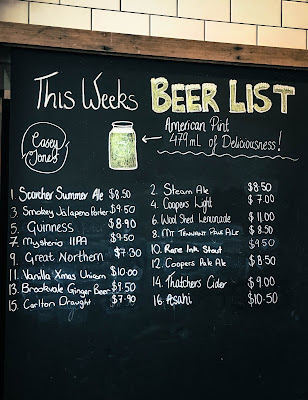 This Weeks BEER LIST
Casey
Jones
American Pint
479 mL of Deliciousness!
1. Scorcher Summer Ale $8.50
2. Steam Ale $8.50
3. Smokey Jalapeno Porter $9.50
4. Coopers Light $7.00
5. Guinness $8.90
6. Wool Shed Lemonade $11.00
7. Mysterio IIPA $9.50
8. Mt Tennant Pale Ale $8.50
9. Great Northern $7.30
10. Rare Ink Stout $9.50
11. Vanilla Xmas Unicorn $10.00
12. Coopers Pale Ale $8.50
13. Brookvale Ginger Beer $9.50
14. Thatchers Cider $9.00
15. Carlton Draught $7.90
16. Asahi $10.50